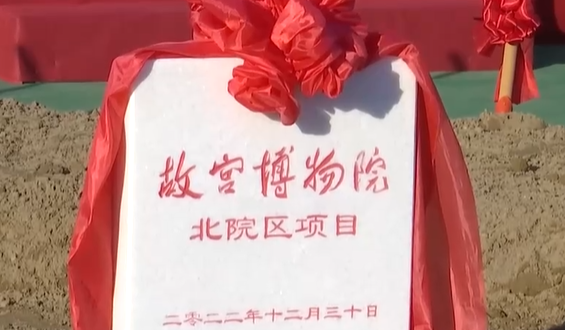 故宫博物院
北院区项目
二零二二年十二月三十日